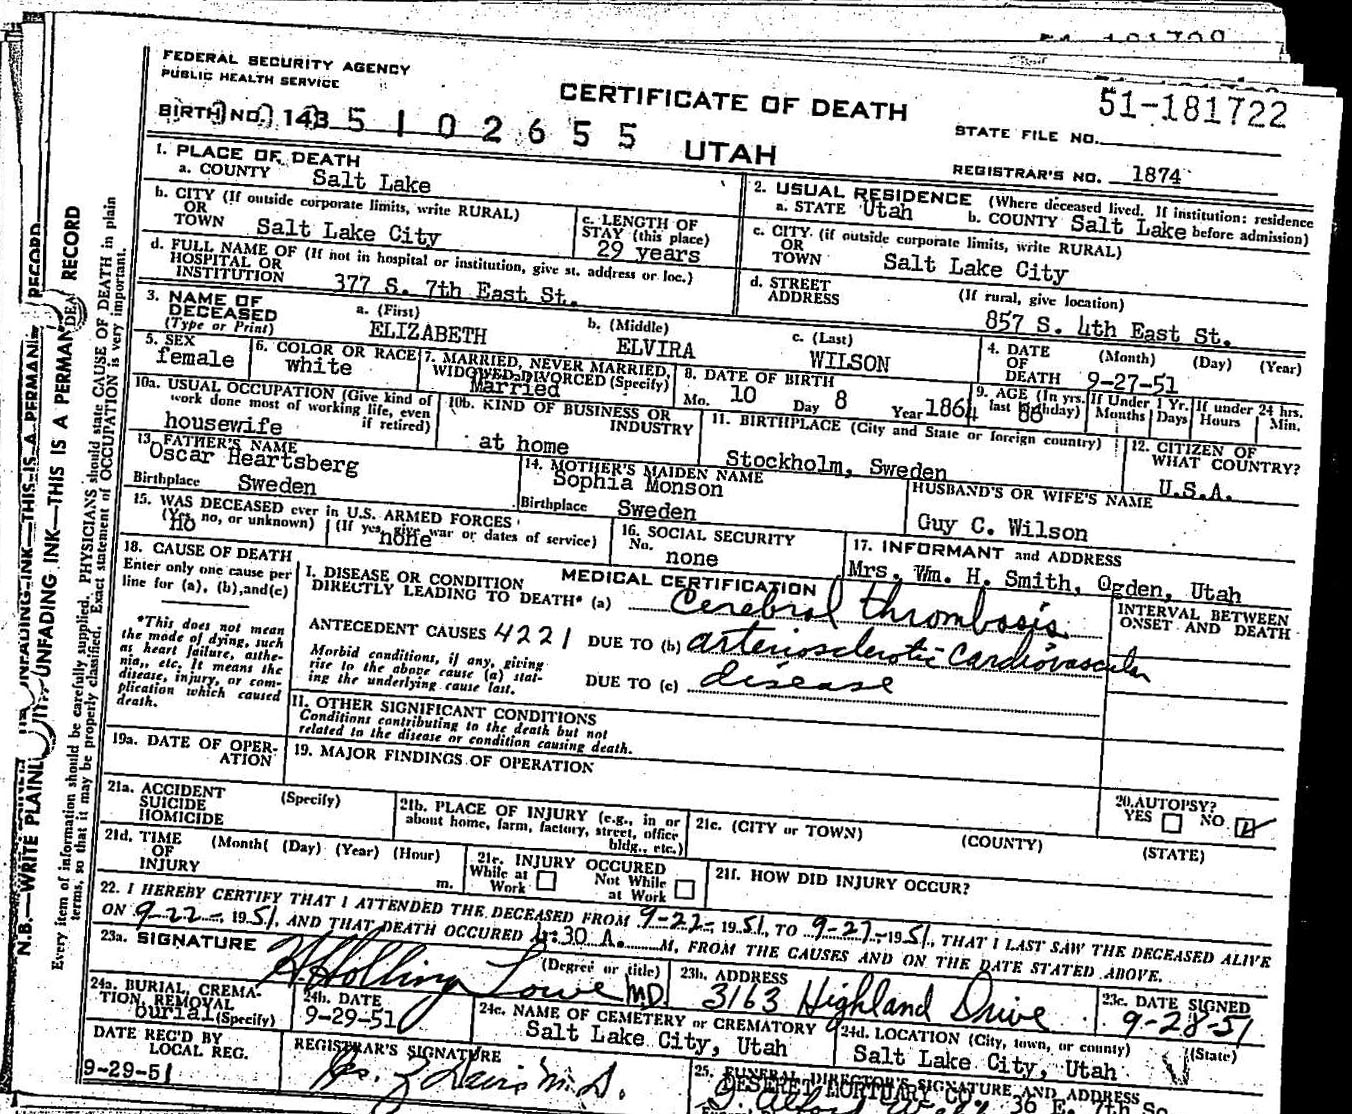 FEDERAL SECURITY AGENCY
PUBLIC HEALTH SERVICE
CERTIFICATE OF DEATH
51-181722
STATE FILE NO.
BIRTH NO. 143 5 1 0 2 6 5 5
UTAH
REGISTRAR'S NO. 1874
1. PLACE OF DEATH
a. COUNTY Salt Lake
2. USUAL RESIDENCE (Where deceased lived. If institution: residence before admission)
a. STATE Utah b. COUNTY Salt Lake
b. CITY (If outside corporate limits, write RURAL)
OR
TOWN Salt Lake City
c. LENGTH OF
STAY (this place)
29 years
c. CITY (if outside corporate limits, write RURAL)
OR
TOWN Salt Lake City
d. FULL NAME OF (If not in hospital or institution, give st. address or loc.)
HOSPITAL OR
INSTITUTION 377 S. 7th East St.
d. STREET (If rural, give location)
ADDRESS 857 S. 4th East St.
3. NAME OF
DECEASED
(Type or Print)
a. (First) ELIZABETH
b. (Middle) ELVIRA
c. (Last) WILSON
4. DATE (Month) (Day) (Year)
OF
DEATH 9-27-51
5. SEX
female
6. COLOR OR RACE
white
7. MARRIED, NEVER MARRIED,
WIDOWED, DIVORCED (Specify)
Married
8. DATE OF BIRTH
Mo. 10 Day 8 Year 1864
9. AGE (In yrs. last birthday) 86
If Under 1 Yr. Months Days
If under 24 hrs. Hours Min.
10a. USUAL OCCUPATION (Give kind of
work done most of working life, even
if retired)
housewife
10b. KIND OF BUSINESS OR
INDUSTRY
at home
11. BIRTHPLACE (City and State or foreign country)
Stockholm, Sweden
12. CITIZEN OF
WHAT COUNTRY?
U.S.A.
13. FATHER'S NAME
Oscar Heartsberg
Birthplace Sweden
14. MOTHER'S MAIDEN NAME
Sophia Monson
Birthplace Sweden
HUSBAND'S OR WIFE'S NAME
Guy C. Wilson
15. WAS DECEASED ever in U.S. ARMED FORCES
(Yes, no, or unknown) (If yes, give war or dates of service)
no none
16. SOCIAL SECURITY
No. none
17. INFORMANT and ADDRESS
Mrs. Wm. H. Smith, Ogden, Utah
18. CAUSE OF DEATH
Enter only one cause per
line for (a), (b), and (c)
*This does not mean
the mode of dying, such
as heart failure, asthe-
nia, etc. It means the
disease, injury, or com-
plication which caused
death.
MEDICAL CERTIFICATION
I. DISEASE OR CONDITION
DIRECTLY LEADING TO DEATH* (a) Cerebral thrombosis
ANTECEDENT CAUSES 4221 DUE TO (b) arteriosclerotic cardiovascular
Morbid conditions, if any, giving
rise to the above cause (a) stat-
ing the underlying cause last.
DUE TO (c) disease
INTERVAL BETWEEN
ONSET AND DEATH
II. OTHER SIGNIFICANT CONDITIONS
Conditions contributing to the death but not
related to the disease or condition causing death.
19a. DATE OF OPER-
ATION
19. MAJOR FINDINGS OF OPERATION
20. AUTOPSY?
YES NO
21a. ACCIDENT (Specify)
SUICIDE
HOMICIDE
21b. PLACE OF INJURY (e.g., in or
about home, farm, factory, street, office
bldg., etc.)
21c. (CITY or TOWN) (COUNTY) (STATE)
21d. TIME (Month( (Day) (Year) (Hour)
OF
INJURY m.
21e. INJURY OCCURED
While at Work Not While at Work
21f. HOW DID INJURY OCCUR?
22. I HEREBY CERTIFY THAT I ATTENDED THE DECEASED FROM 9-22- 1951, TO 9-27-1951, THAT I LAST SAW THE DECEASED ALIVE
ON 9-22- 1951, AND THAT DEATH OCCURED 4:30 A. M, FROM THE CAUSES AND ON THE DATE STATED ABOVE.
23a. SIGNATURE (Degree or title)
H Hollings Lowe MD
23b. ADDRESS
3163 Highland Drive
23c. DATE SIGNED
9-28-51
24a. BURIAL, CREMA-
TION, REMOVAL
burial (Specify)
24b. DATE
9-29-51
24c. NAME OF CEMETERY or CREMATORY
Salt Lake City, Utah
24d. LOCATION (City, town, or county) (State)
Salt Lake City, Utah
DATE REC'D BY
LOCAL REG.
9-29-51
REGISTRAR'S SIGNATURE
25. FUNERAL DIRECTOR'S SIGNATURE AND ADDRESS
DESERET MORTUARY CO 36 E. 7th So.
N.B.—WRITE PLAINLY UNFADING INK—THIS IS A PERMANENT RECORD
Every item of information should be carefully supplied. PHYSICIANS should state CAUSE OF DEATH in plain
terms, so that it may be properly classified. Exact statement of OCCUPATION is very important.